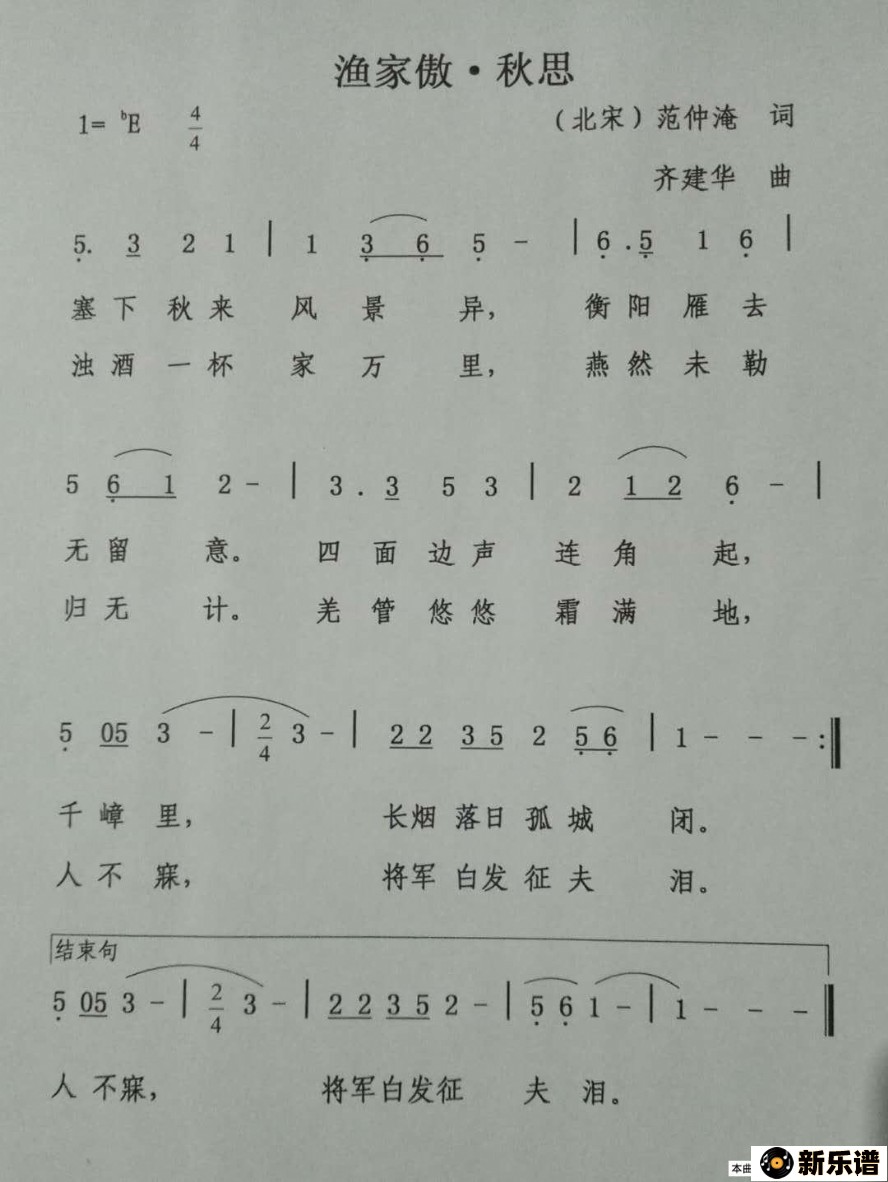 渔家傲·秋思
1= ᵇE 4/4 （北宋）范仲淹 词
齐建华 曲
5. 3 2 1 | 1 3 6 5 - | 6 . 5 1 6 |
塞下秋来 风景异，衡阳雁去
浊酒一杯 家万里，燕然未勒
5 6 1 2 - | 3 . 3 5 3 | 2 1 2 6 - |
无留意。四面边声 连角起，
归无计。羌管悠悠 霜满地，
5 05 3 - | 2/4 3 - | 22 35 2 56 | 1 - - - :‖
千嶂里，长烟落日孤城 闭。
人不寐，将军白发征夫 泪。
结束句
5 05 3 - | 2/4 3 - | 22 35 2 - | 5 6 1 - | 1 - - - ‖
人不寐，将军白发征 夫泪。
本曲
新乐谱